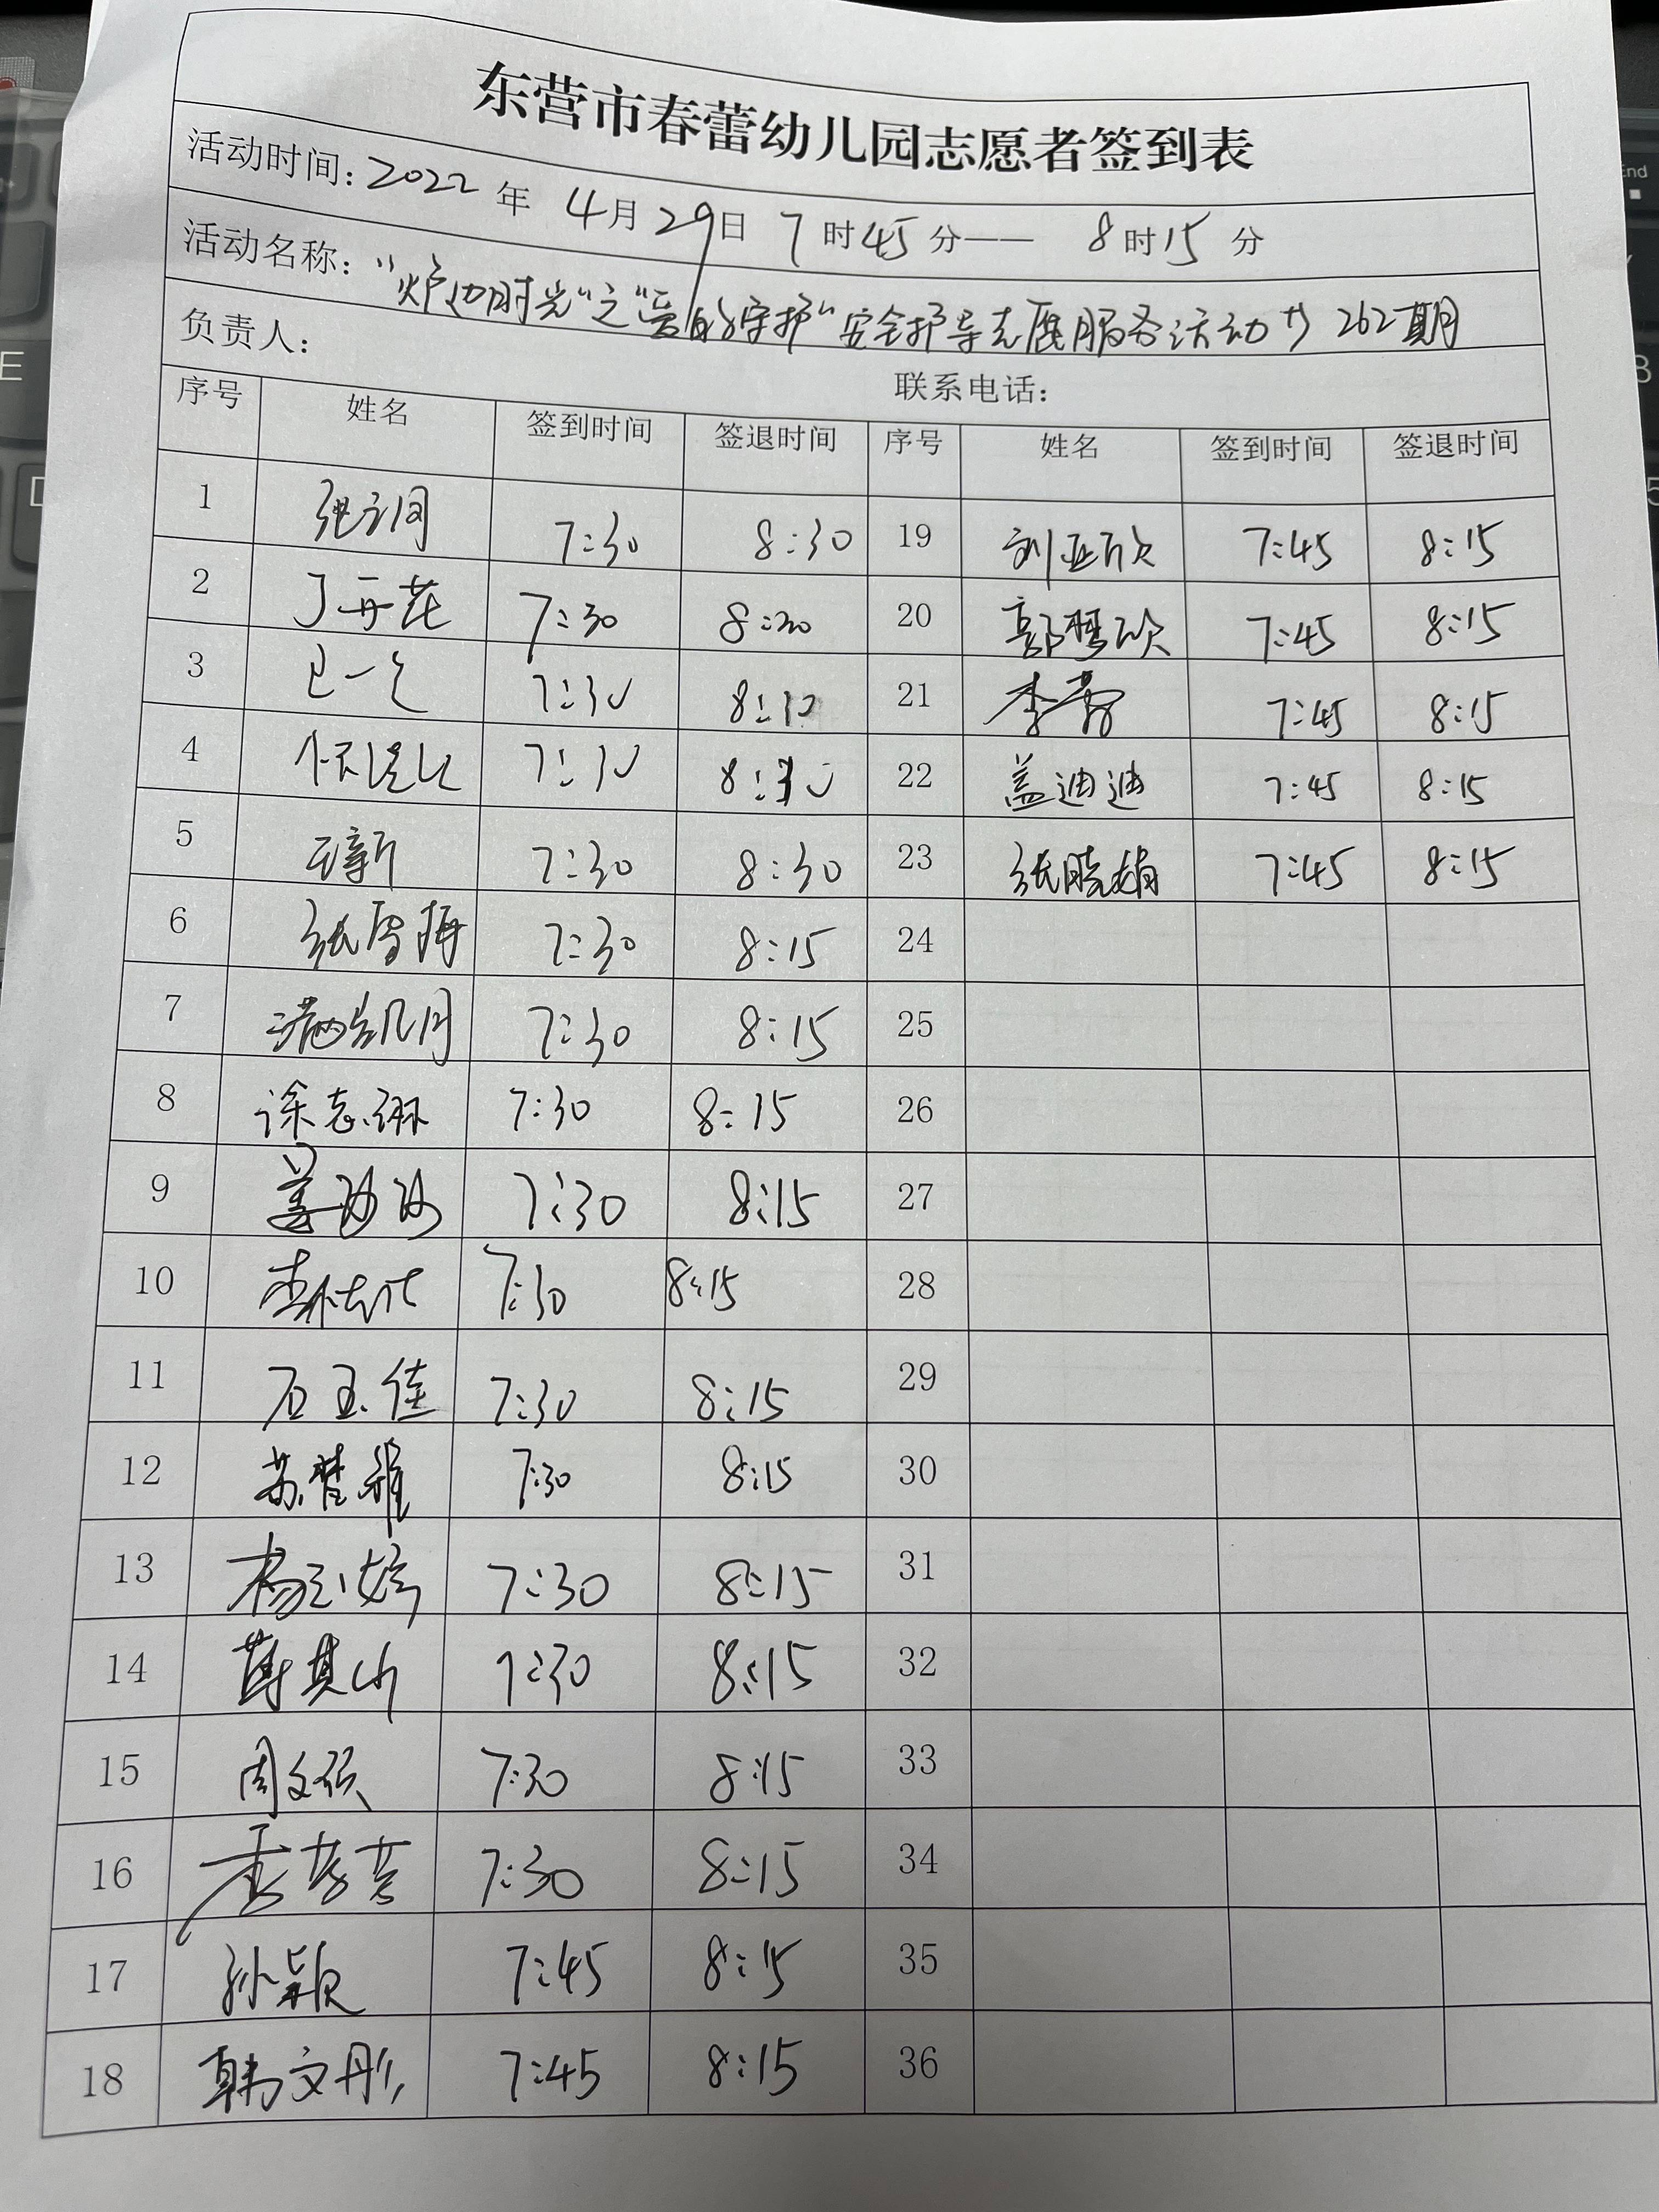 东营市春蕾幼儿园志愿者签到表
活动时间：2022 年 4月29日 7时45分—— 8时15分
活动名称："炉边时光"之"爱的守护"安全护导志愿服务活动 262期
负责人： 联系电话：
序号 姓名 签到时间 签退时间 序号 姓名 签到时间 签退时间
1 7:30 8:30 19 刘亚欣 7:45 8:15
2 丁冉花 7:30 8:30 20 郭梦欣 7:45 8:15
3 7:30 8:30 21 李 7:45 8:15
4 7:30 8:30 22 盖迪迪 7:45 8:15
5 王新 7:30 8:30 23 张晓娟 7:45 8:15
6 张 7:30 8:15 24
7 满凯月 7:30 8:15 25
8 徐志琳 7:30 8:15 26
9 姜 7:30 8:15 27
10 李 7:30 8:15 28
11 石玉佳 7:30 8:15 29
12 苏楚雅 7:30 8:15 30
13 杨玉婷 7:30 8:15 31
14 其 7:30 8:15 32
15 周文硕 7:30 8:15 33
16 7:30 8:15 34
17 孙颖 7:45 8:15 35
18 韩文彤 7:45 8:15 36
End
E
D